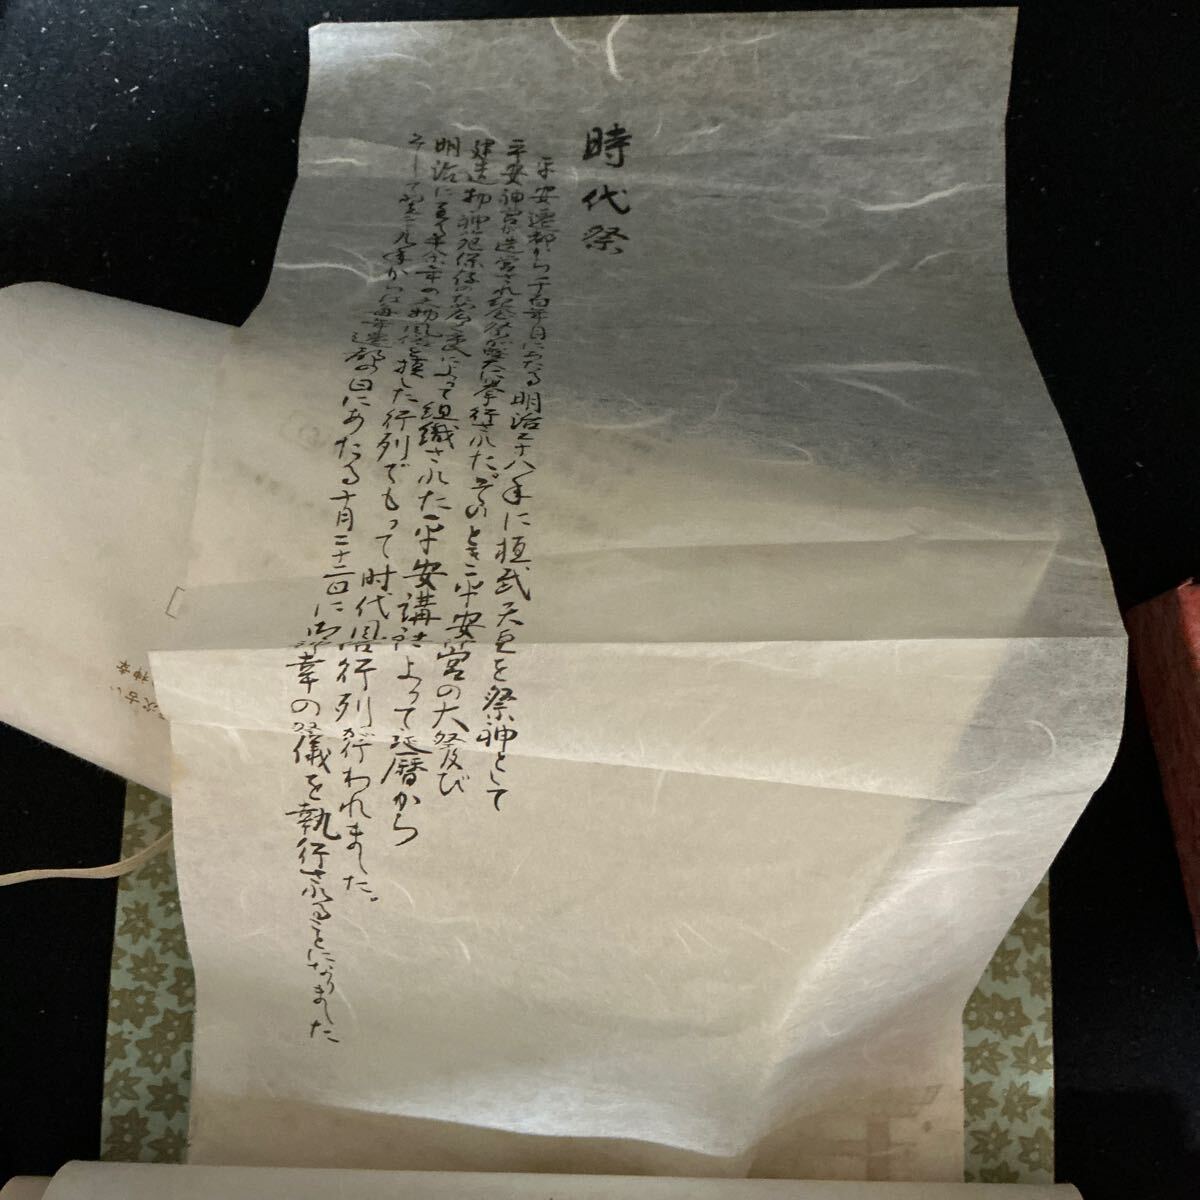 時代祭
平安遷都から千百年目にあたる明治二十八年に桓武天皇を祭神として
平安神宮が造営され記念祭が盛大に挙行された。そのとき平安宮の大祭及び
建造物神苑保存のため
明治に至る千余年の文物風俗を模した行列でもって時代風俗行列が行われました。
そして 年からは毎年遷都の日にあたる十月二十二日に 幸の祭儀を執行されることになりました
によって組織された平安講社によって延暦から